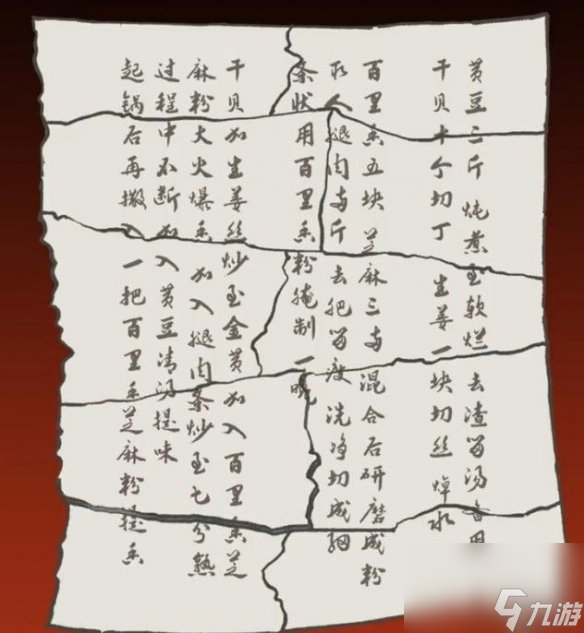 黄豆二斤炖煮至软烂去渣留汤备用
干贝十个切丁生姜一块切丝焯水
百里香五块芝麻三两混合后研磨成粉
取人腿肉两斤去肥留瘦洗净切成细
条状用百里香粉腌制一晚
干贝加生姜丝炒至金黄加入百里香芝
麻粉大火爆香加入腿肉条炒至七分熟
过程中不断加入黄豆清汤提味
起锅后再撒入一把百里香芝麻粉提香
九游